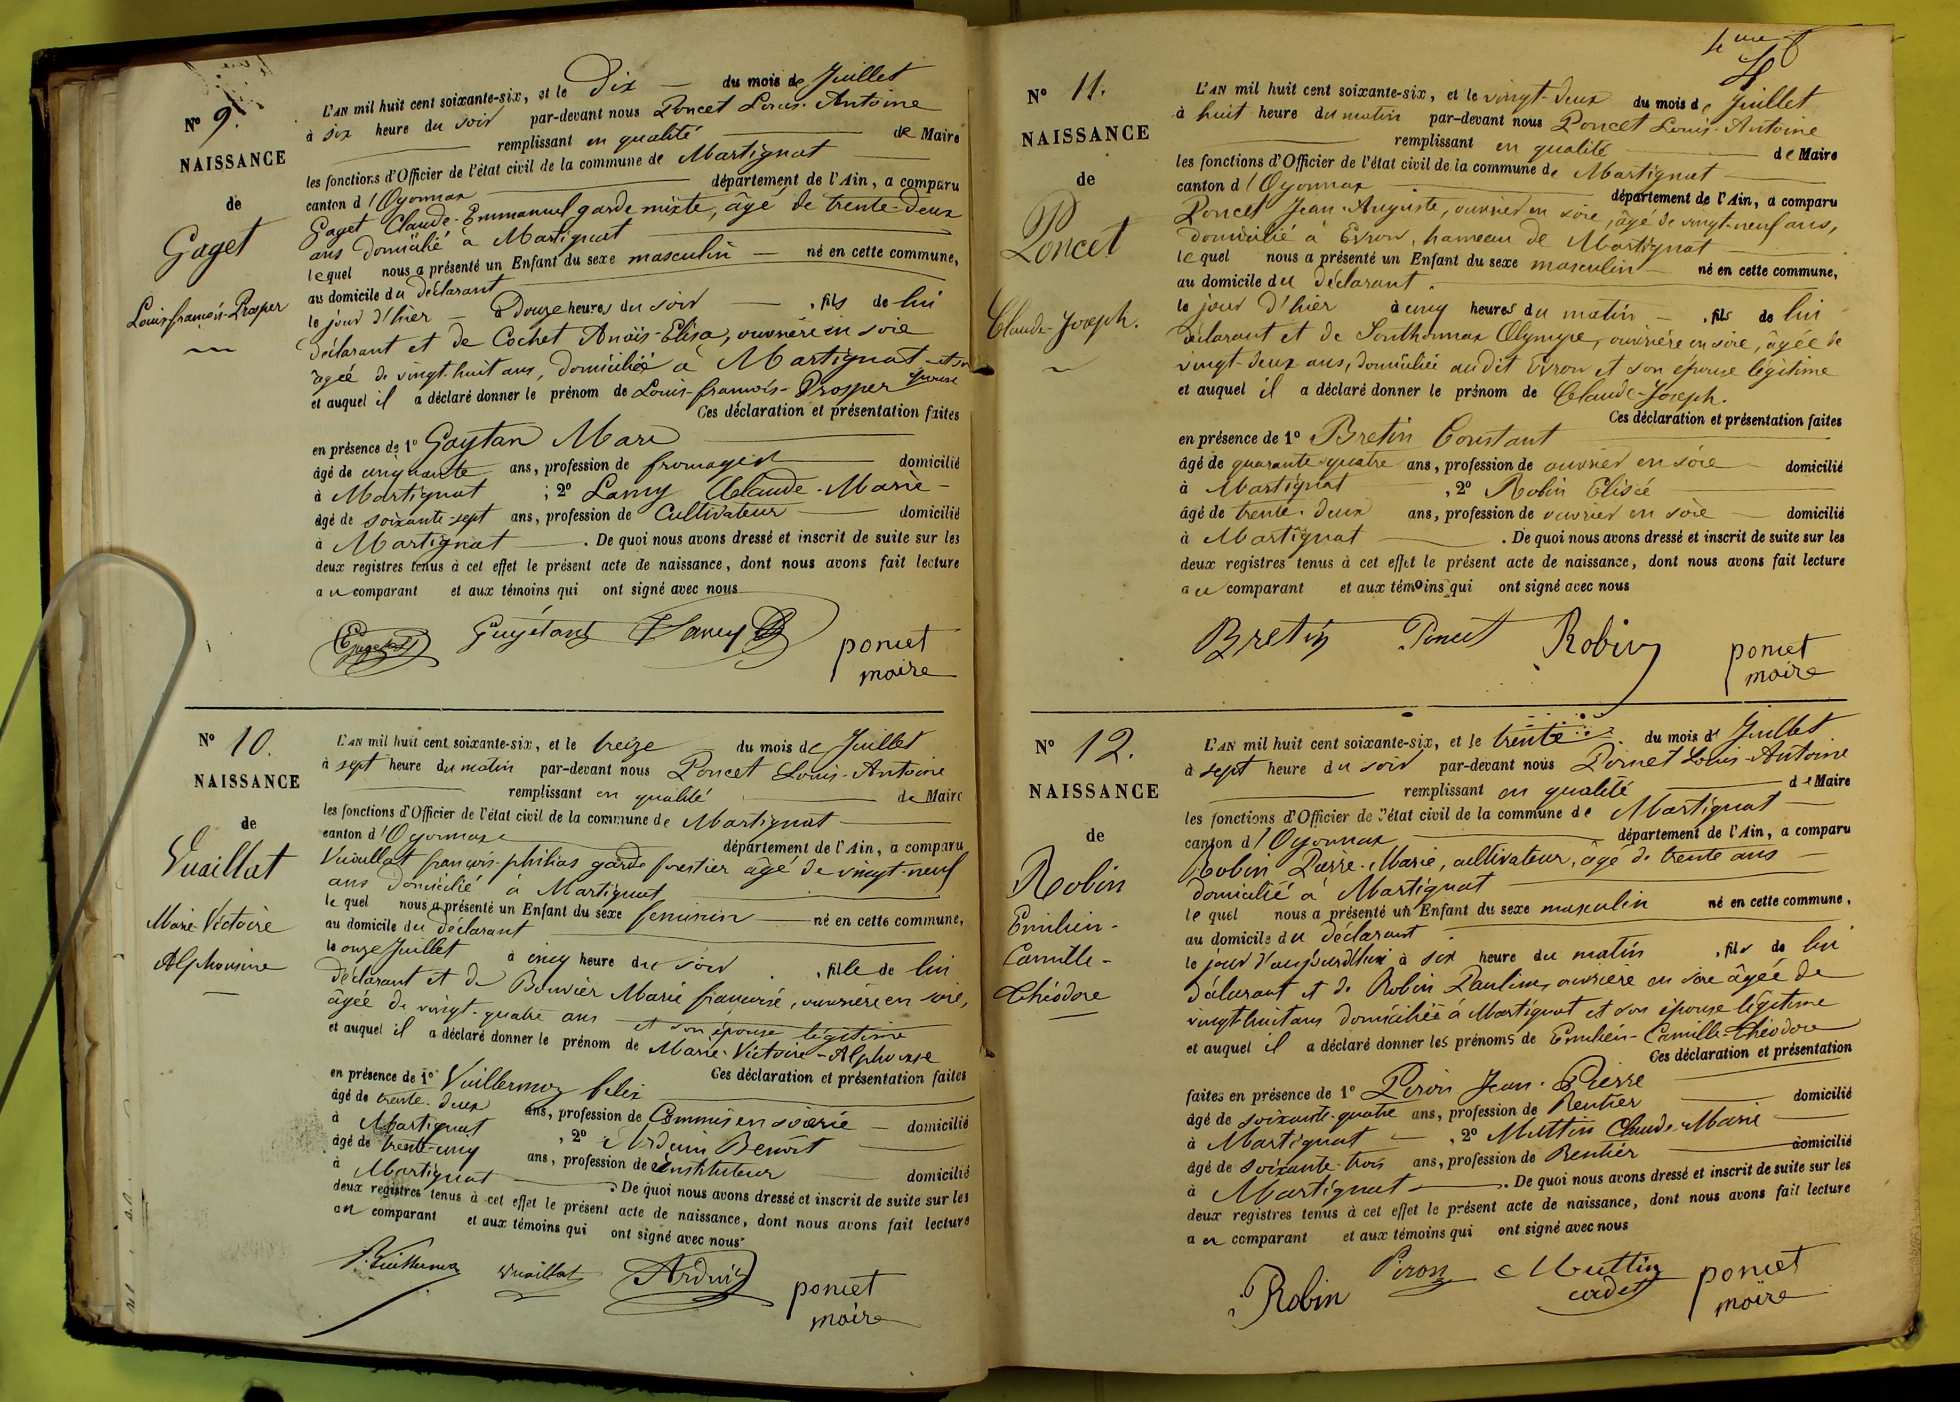 Nº 9.
NAISSANCE
de
Gaget
Louis-françois-Prosper
L'AN mil huit cent soixante-six, et le Dix du mois de Juillet
à six heure du soir par-devant nous Poncet Louis-Antoine
remplissant en qualité de Maire
les fonctions d'Officier de l'état civil de la commune de Martignat
canton d'Oyonnax département de l'Ain, a comparu
Gaget Claude-Emmanuel garde mixte, âgé de trente-deux
ans domicilié à Martignat
lequel nous a présenté un Enfant du sexe masculin né en cette commune,
au domicile du déclarant
le jour d'hier à Douze heures du soir, fils de lui
déclarant et de Cochet Anaïs-Elisa, ouvrière en soie
âgée de vingt-huit ans, domiciliée à Martignat et son
épouse
et auquel il a déclaré donner le prénom de Louis-françois-Prosper
Ces déclaration et présentation faites
en présence de 1º Marc
âgé de cinquante ans, profession de fromager domicilié
à Martignat ; 2º Lamy Claude-Marie
âgé de soixante-sept ans, profession de Cultivateur domicilié
à Martignat. De quoi nous avons dressé et inscrit de suite sur les
deux registres tenus à cet effet le présent acte de naissance, dont nous avons fait lecture
au comparant et aux témoins qui ont signé avec nous
Guyétant Lamy
poncet
maire
Nº 10.
NAISSANCE
de
Vuaillat
Marie Victoire
Alphonsine
L'AN mil huit cent soixante-six, et le treize du mois de Juillet
à sept heure du matin par-devant nous Poncet Louis-Antoine
remplissant en qualité de Maire
les fonctions d'Officier de l'état civil de la commune de Martignat
canton d'Oyonnax département de l'Ain, a comparu
Vuaillat françois-philias garde forestier âgé de vingt-neuf
ans domicilié à Martignat
lequel nous a présenté un Enfant du sexe feminin né en cette commune,
au domicile du déclarant
le onze Juillet à cinq heure du soir, fille de lui
déclarant et de Bouvier Marie françoise, ouvrière en soie,
âgée de vingt-quatre ans et son épouse légitime
et auquel il a déclaré donner le prénom de Marie-Victoire-Alphonsine
Ces déclaration et présentation faites
en présence de 1º Vuillermoz felix
âgé de trente-deux ans, profession de Commis en soierie domicilié
à Martignat, 2º Arduin Benoît
âgé de trente-cinq ans, profession de instituteur domicilié
à Martignat. De quoi nous avons dressé et inscrit de suite sur les
deux registres tenus à cet effet le présent acte de naissance, dont nous avons fait lecture
au comparant et aux témoins qui ont signé avec nous
Vuillermoz Vuaillat Arduin
poncet
maire
4
Nº 11.
NAISSANCE
de
Poncet
Claude-Joseph.
L'AN mil huit cent soixante-six, et le vingt-deux du mois de Juillet
à huit heure du matin par-devant nous Poncet Louis-Antoine
remplissant en qualité de Maire
les fonctions d'Officier de l'état civil de la commune de Martignat
canton d'Oyonnax département de l'Ain, a comparu
Poncet Jean-Auguste, ouvrier en soie, âgé de vingt-neuf ans,
domicilié à Evron, hameau de Martignat
lequel nous a présenté un Enfant du sexe masculin né en cette commune,
au domicile du déclarant.
le jour d'hier à cinq heures du matin, fils de lui
déclarant et de Sonthonnax Olympe, ouvrière en soie, âgée de
vingt-deux ans, domiciliée audit Evron et son épouse légitime
et auquel il a déclaré donner le prénom de Claude-Joseph.
Ces déclaration et présentation faites
en présence de 1º Bretin Constant
âgé de quarante-quatre ans, profession de ouvrier en soie domicilié
à Martignat, 2º Robin Elisée
âgé de trente-deux ans, profession de ouvrier en soie domicilié
à Martignat. De quoi nous avons dressé et inscrit de suite sur les
deux registres tenus à cet effet le présent acte de naissance, dont nous avons fait lecture
au comparant et aux témoins qui ont signé avec nous
Bretin Poncet Robin
poncet
maire
Nº 12.
NAISSANCE
de
Robin
Emilien-
Camille-
Théodore
L'AN mil huit cent soixante-six, et le trente du mois de Juillet
à sept heure du soir par-devant nous Poncet Louis-Antoine
remplissant en qualité de Maire
les fonctions d'Officier de l'état civil de la commune de Martignat
canton d'Oyonnax département de l'Ain, a comparu
Robin Pierre-Marie, cultivateur, âgé de trente ans
domicilié à Martignat
lequel nous a présenté un Enfant du sexe masculin né en cette commune,
au domicile du déclarant
le jour d'aujourd'hui à six heure du matin, fils de lui
déclarant et de Robin Pauline, ouvrière en soie âgée de
vingt-huit ans domiciliée à Martignat et son épouse légitime
et auquel il a déclaré donner les prénoms de Emilien-Camille-Théodore
Ces déclaration et présentation
faites en présence de 1º Piron Jean-Pierre
âgé de soixante-quatre ans, profession de Rentier domicilié
à Martignat, 2º Muttin Claude-Marie
âgé de soixante-trois ans, profession de Rentier domicilié
à Martignat. De quoi nous avons dressé et inscrit de suite sur les
deux registres tenus à cet effet le présent acte de naissance, dont nous avons fait lecture
au comparant et aux témoins qui ont signé avec nous
Robin Piron Muttin
cadet
poncet
maire